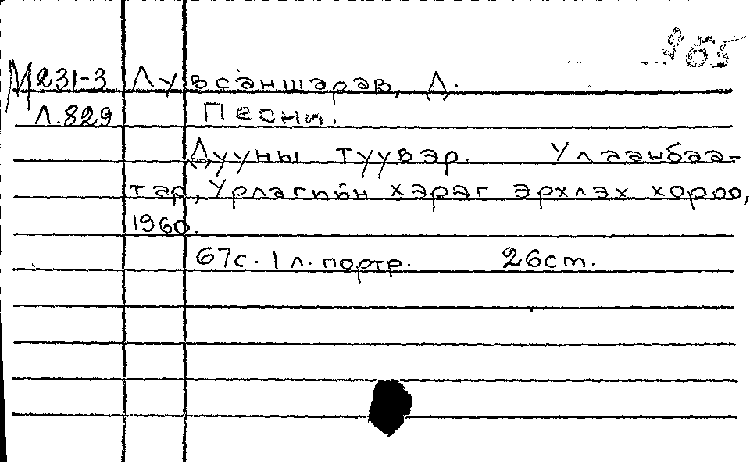 965
М231-3 Лувсаншарав, Д.
Л.829 Песни.
Дууны түүвэр. Улаанбаа-
тар, Урлагийн хэрэг эрхлэх хороо,
1960.
67с. 1 л. портр. 26см.